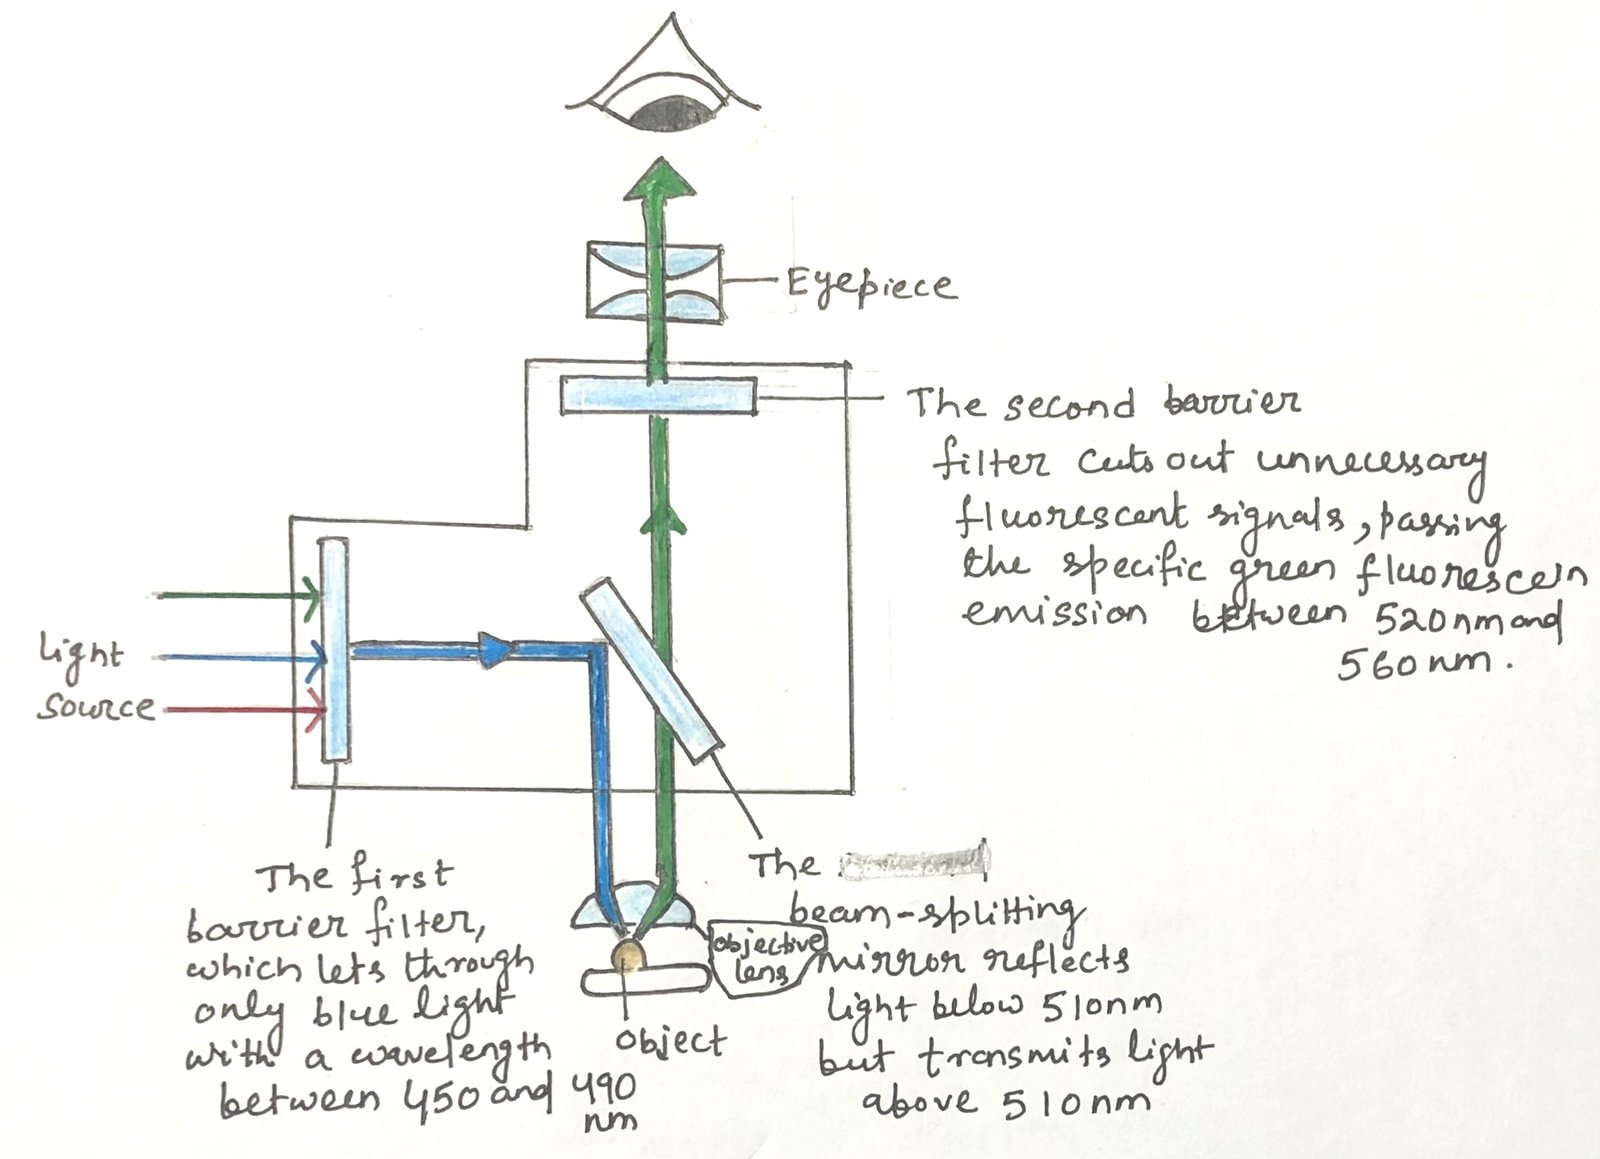 Eyepiece
The second barrier
filter cuts out unnecessary
fluorescent signals, passing
the specific green fluorescein
emission between 520nm and
560 nm.
Light
source
The first
barrier filter,
which lets through
only blue light
with a wavelength
between 450 and 490
nm
The
beam-splitting
mirror reflects
light below 510nm
but transmits light
above 510nm
objective
lens
object